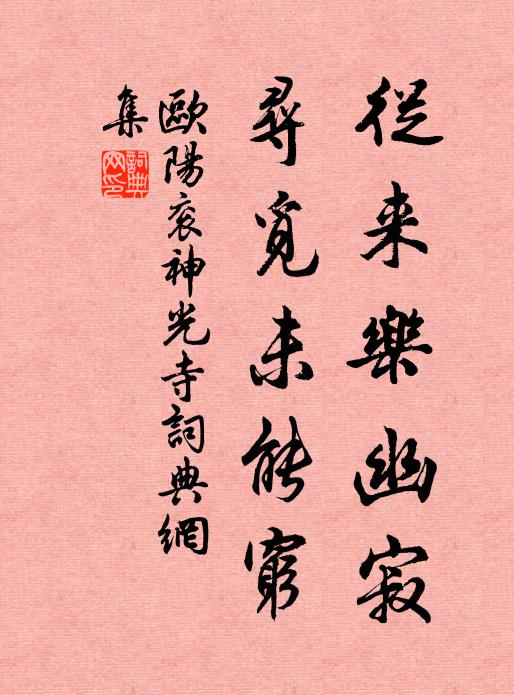 從来樂幽寂
尋覓未能窮
歐陽衮神光寺詞典網
集
詞典
网印